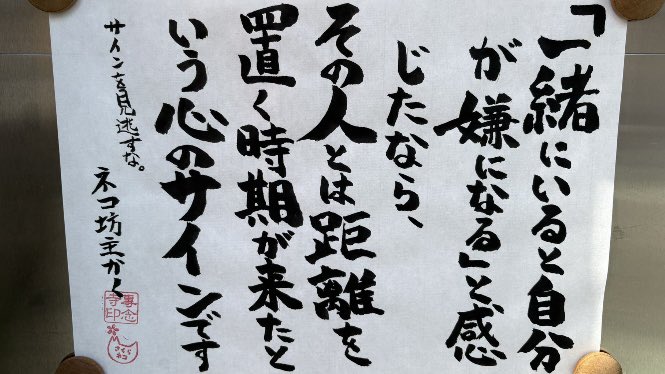 「一緒にいると自分
が嫌になる」と感
じたなら、
その人とは距離を
置く時期が来たと
いう心のサインです
サインを見逃すな。
ネコ坊主かく
専念
寺印